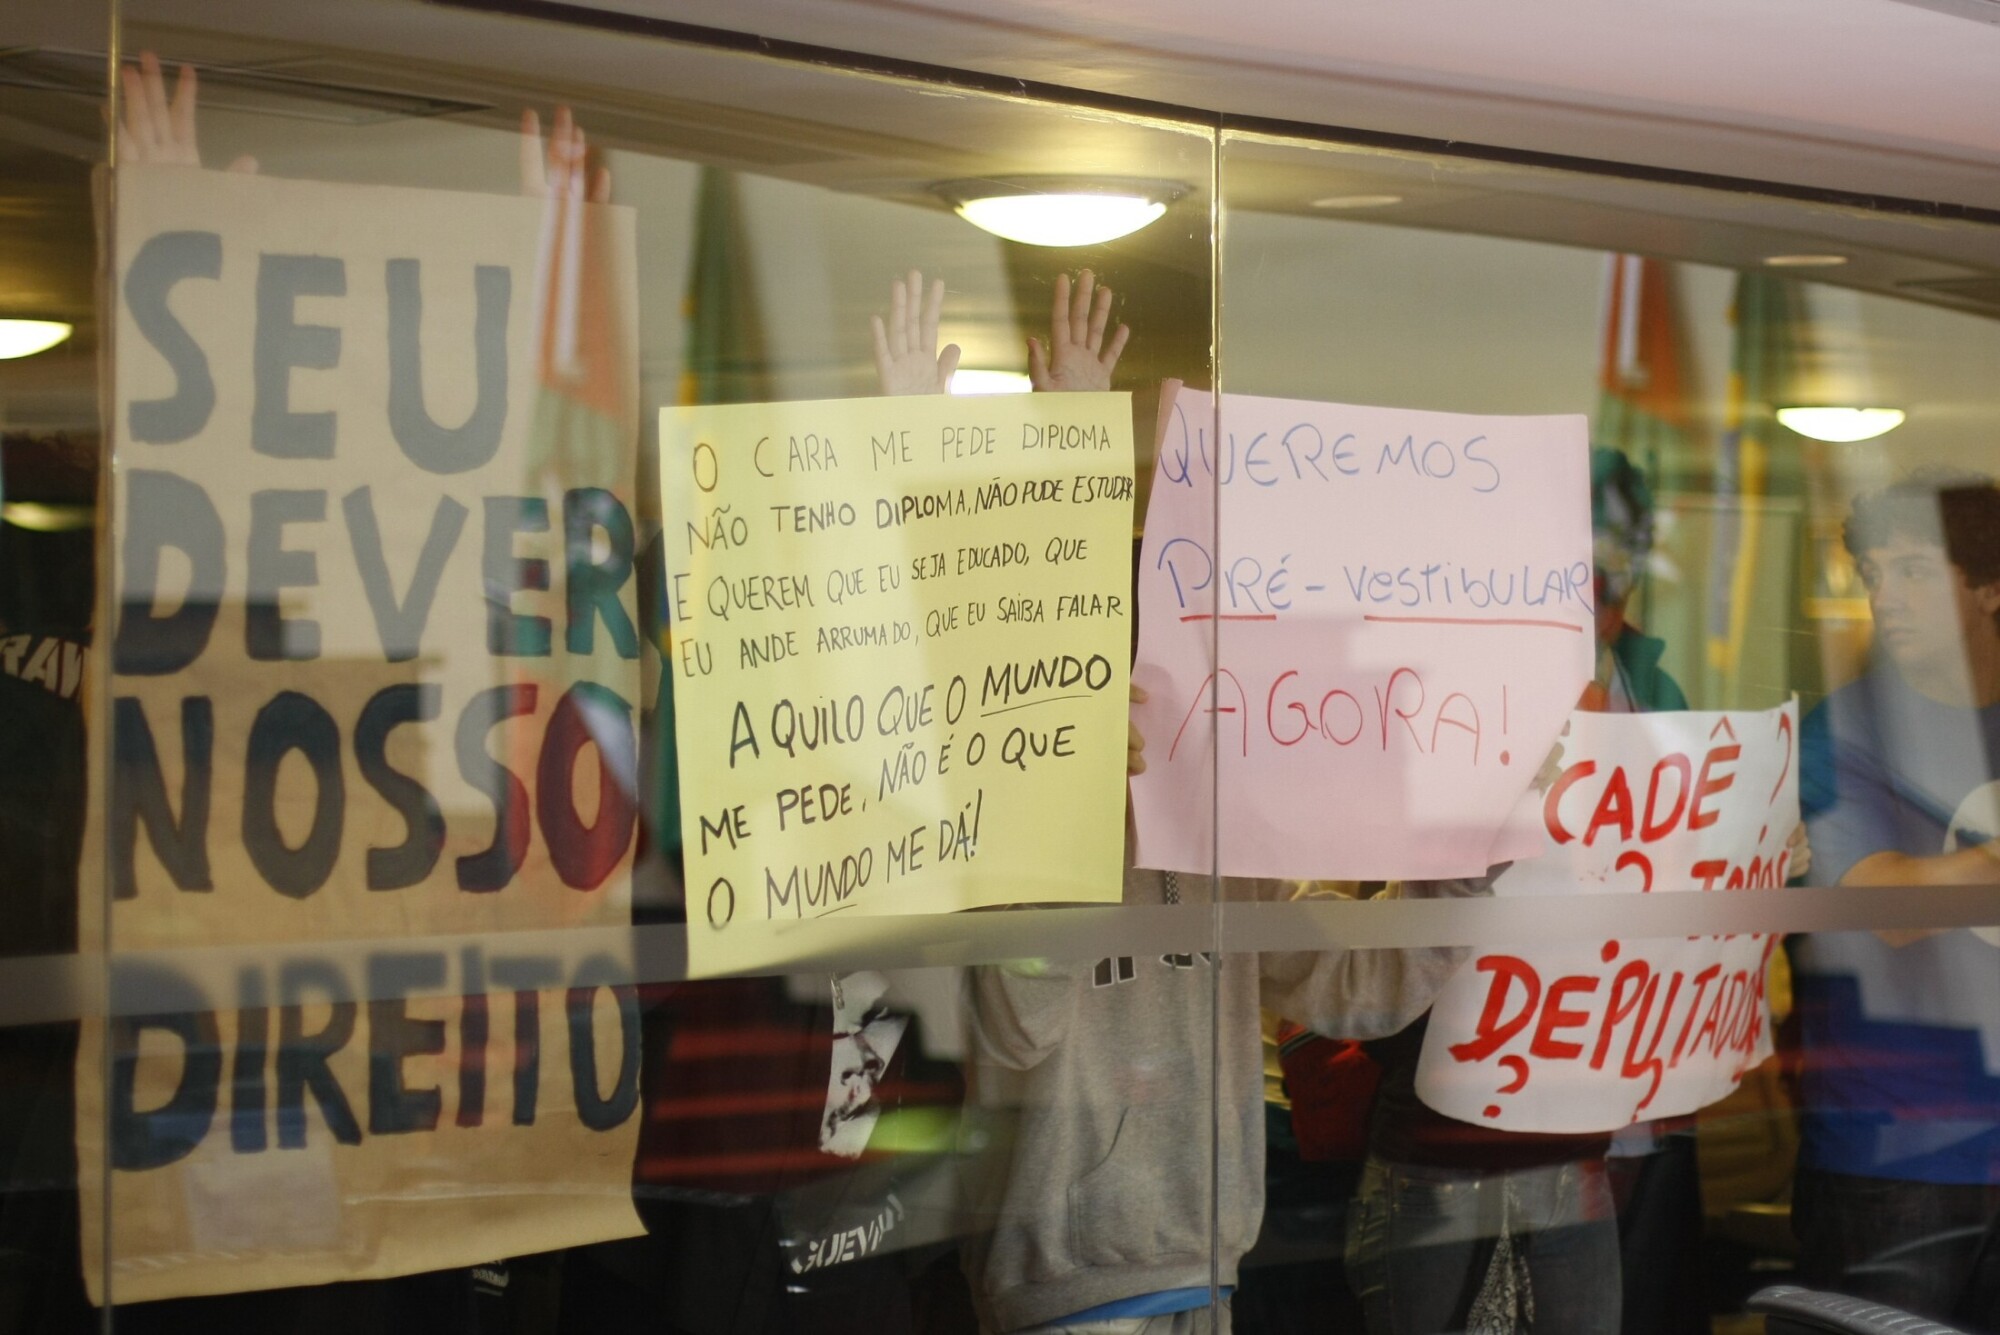 SEU
DEVER
NOSSO
DIREITO
O CARA ME PEDE DIPLOMA
NÃO TENHO DIPLOMA, NÃO PUDE ESTUDAR
E QUEREM QUE EU SEJA EDUCADO, QUE
EU ANDE ARRUMADO, QUE EU SAIBA FALAR
AQUILO QUE O MUNDO
ME PEDE, NÃO É O QUE
O MUNDO ME DÁ!
QUEREMOS
PRÉ-VESTIBULAR
AGORA!
CADÊ ?
? TODOS
DEPUTADOS
? ?